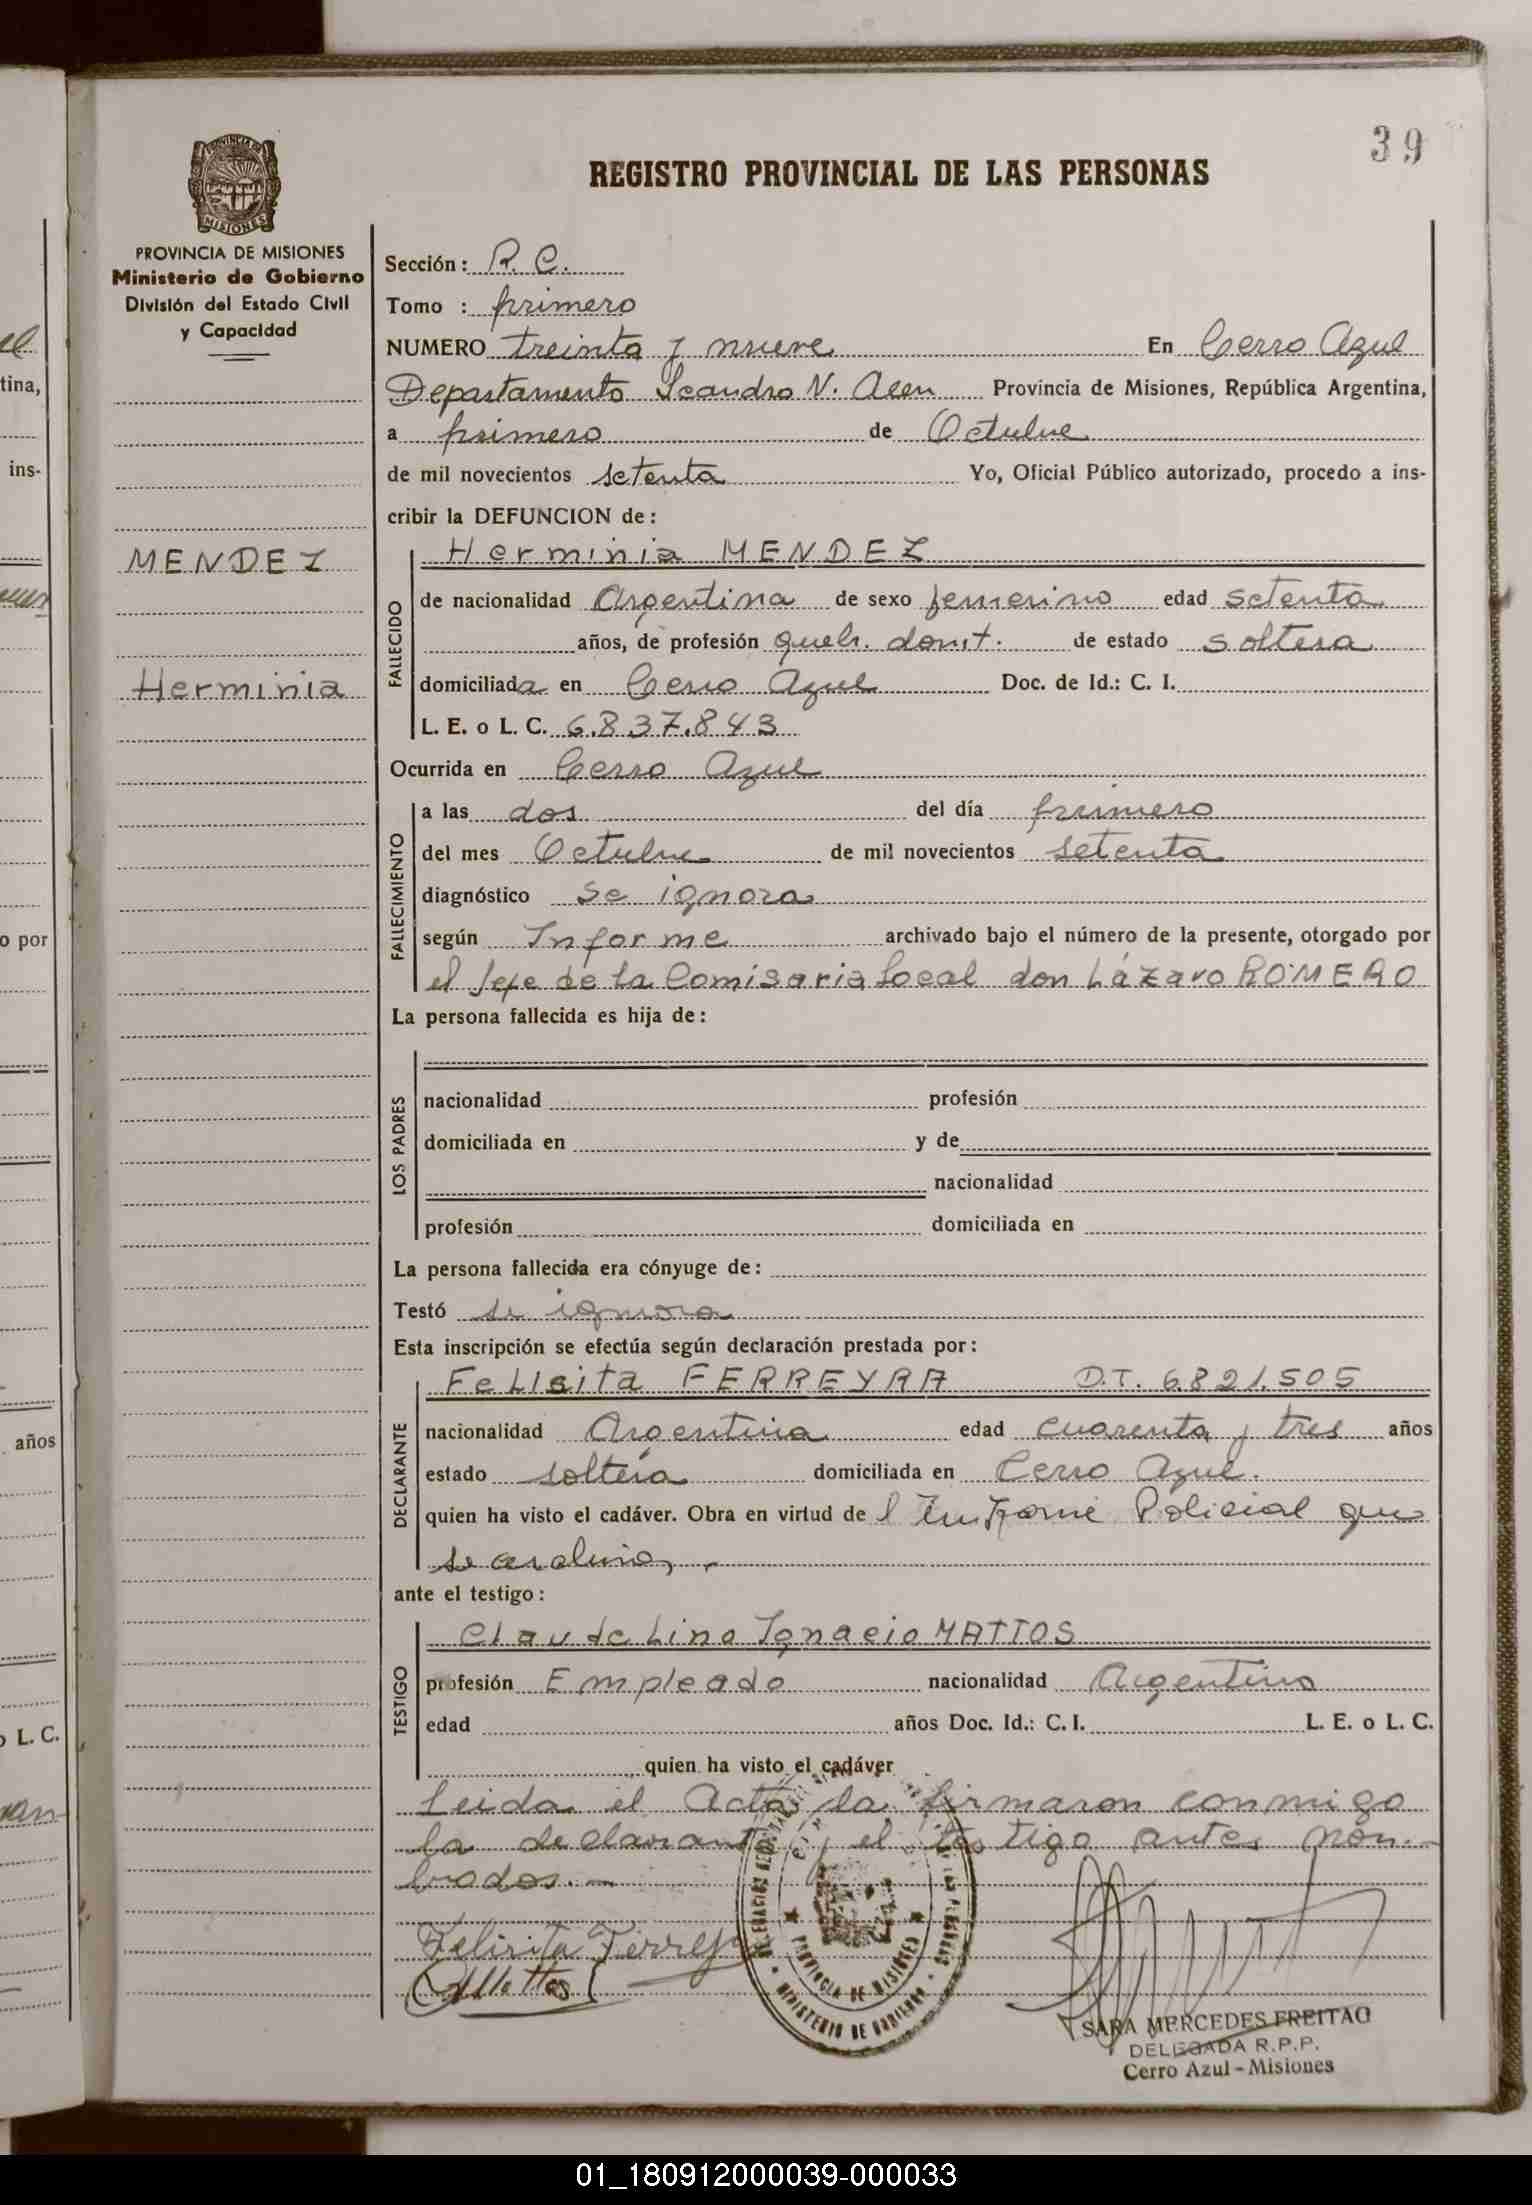 39
PROVINCIA DE
MISIONES
PROVINCIA DE MISIONES
Ministerio de Gobierno
División del Estado Civil
y Capacidad
MENDEZ
Herminia
REGISTRO PROVINCIAL DE LAS PERSONAS
Sección: R. C.
Tomo : primero
NUMERO treinta y nueve En Cerro Azul
Departamento Leandro N. Alem Provincia de Misiones, República Argentina,
a primero de Octubre
de mil novecientos setenta Yo, Oficial Público autorizado, procedo a ins-
cribir la DEFUNCION de:
Herminia MENDEZ
FALLECIDO
de nacionalidad Argentina de sexo femenino edad setenta
años, de profesión queh. domt. de estado soltera
domiciliada en Cerro Azul Doc. de Id.: C. I.
L. E. o L. C. 6.837.843
Ocurrida en Cerro Azul
FALLECIMIENTO
a las dos del día primero
del mes Octubre de mil novecientos setenta
diagnóstico se ignora
según Informe archivado bajo el número de la presente, otorgado por
el Jefe de la Comisaria Local don Lázaro ROMERO
La persona fallecida es hija de:
LOS PADRES
nacionalidad profesión
domiciliada en y de
nacionalidad
profesión domiciliada en
La persona fallecida era cónyuge de:
Testó se ignora
Esta inscripción se efectúa según declaración prestada por:
Felisita FERREYRA D.T. 6.821.505
DECLARANTE
nacionalidad Argentina edad cuarenta y tres años
estado soltera domiciliada en Cerro Azul.
quien ha visto el cadáver. Obra en virtud del Informe Policial que
se archiva
ante el testigo:
Claudelino Ignacio MATTOS
TESTIGO
profesión Empleado nacionalidad Argentino
edad años Doc. Id.: C. I. L. E. o L. C.
quien ha visto el cadáver
Leida el Acta la firmaron conmigo
la declarante y el testigo antes nom-
brados.-
Felisita Ferreyra
CIMattos
PROVINCIA DE MISIONES
MINISTERIO DE GOBIERNO
SARA MERCEDES FREITAG
DELEGADA R.P.P.
Cerro Azul - Misiones
tina,
ins-
o por
años
o L. C.
01_180912000039-000033